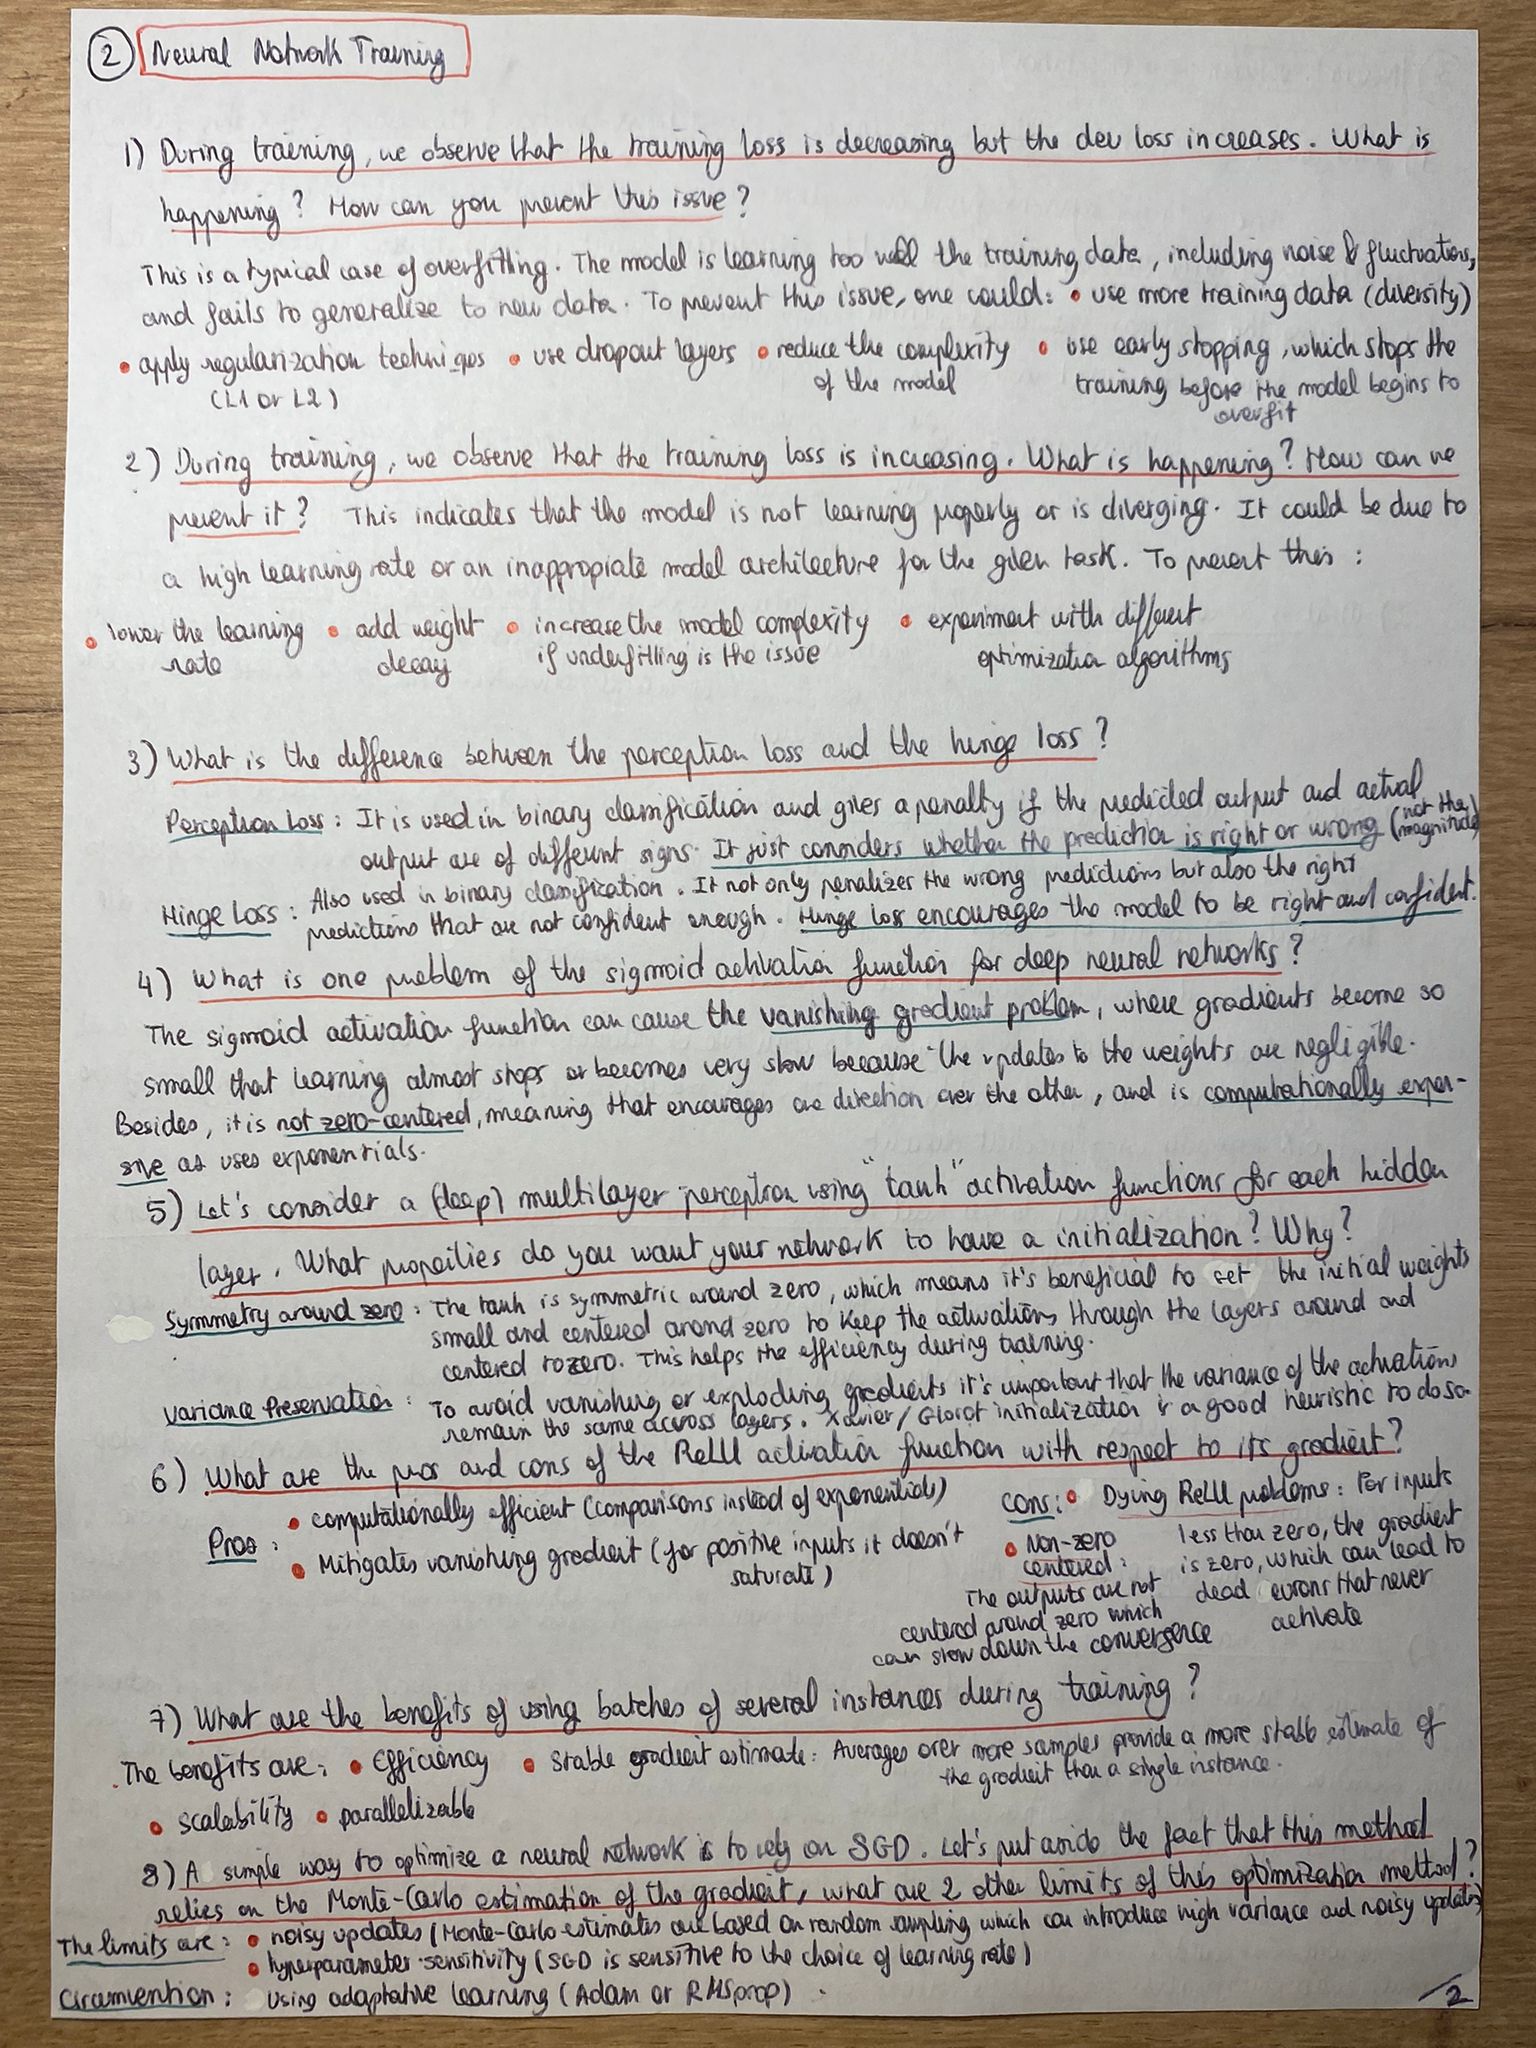 2 Neural Network Training
1) During training, we observe that the training loss is decreasing but the dev loss increases. What is
happening? How can you prevent this issue?
This is a typical case of overfitting. The model is learning too well the training data, including noise & fluctuations,
and fails to generalize to new data. To prevent this issue, one could: • use more training data (diversity)
• apply regularization techniqes (L1 or L2)
• use dropout layers
• reduce the complexity of the model
• use early stopping, which stops the training before the model begins to overfit
2) During training, we observe that the training loss is increasing. What is happening? How can we
prevent it? This indicates that the model is not learning properly or is diverging. It could be due to
a high learning rate or an inappropiate model architecture for the given task. To prevent this:
• lower the learning rate
• add weight decay
• increase the model complexity if underfitting is the issue
• experiment with different optimization algorithms
3) What is the difference between the perception loss and the hinge loss?
Perception Loss: It is used in binary classification and gives a penalty if the predicted output and actual
output are of different signs. It just considers whether the prediction is right or wrong (not the magnitude)
Hinge Loss: Also used in binary classification. It not only penalizes the wrong predictions but also the right
predictions that are not confident enough. Hinge loss encourages the model to be right and confident.
4) What is one problem of the sigmoid activation function for deep neural networks?
The sigmoid activation function can cause the vanishing gredient problem, where gradients become so
small that learning almost stops or becomes very slow because the updates to the weights are negligible.
Besides, it is not zero-centered, meaning that encourages one direction over the other, and is computationally expen-
sive as uses exponentials.
5) Let's consider a (deep) multilayer perceptron using "tanh" activation functions for each hidden
layer. What properties do you want your network to have a initialization? Why?
Symmetry around zero: The tanh is symmetric around zero, which means it's beneficial to set the initial weights
small and centered around zero to keep the activations through the layers around and
centered to zero. This helps the efficiency during training.
Variance Preservation: To avoid vanishing or exploding gredients it's important that the variance of the activations
remain the same across layers. Xavier/Glorot initialization is a good heuristic to do so.
6) What are the pros and cons of the ReLU activation function with respect to its gradient?
Pros:
• computationally efficient (comparisons instead of exponentials)
• Mitigates vanishing gredient (for positive inputs it doesn't
saturate)
Cons: • Dying ReLU problems: For inputs
less than zero, the gredient
is zero, which can lead to
dead eurons that never
activate
• Non-zero
centered:
The outputs are not
centered around zero which
can slow down the convergence
7) What are the benefits of using batches of several instances during training?
The benefits are: • Efficiency • Stable gradient estimate: Averages over more samples provide a more stable estimate of
the gredient than a single instance.
• scalability • parallelizable
8) A simple way to optimize a neural network is to rely on SGD. Let's put aside the fact that this method
relies on the Monte-Carlo estimation of the gredient, what are 2 other limits of this optimization method?
The limits are: • noisy updates (Monte-Carlo estimates are based on random sampling which can introduce high variance and noisy updates)
• hyperparameter sensitivity (SGD is sensitive to the choice of learning rate)
Circumvention: Using adaptative learning (Adam or RMSprop).
2